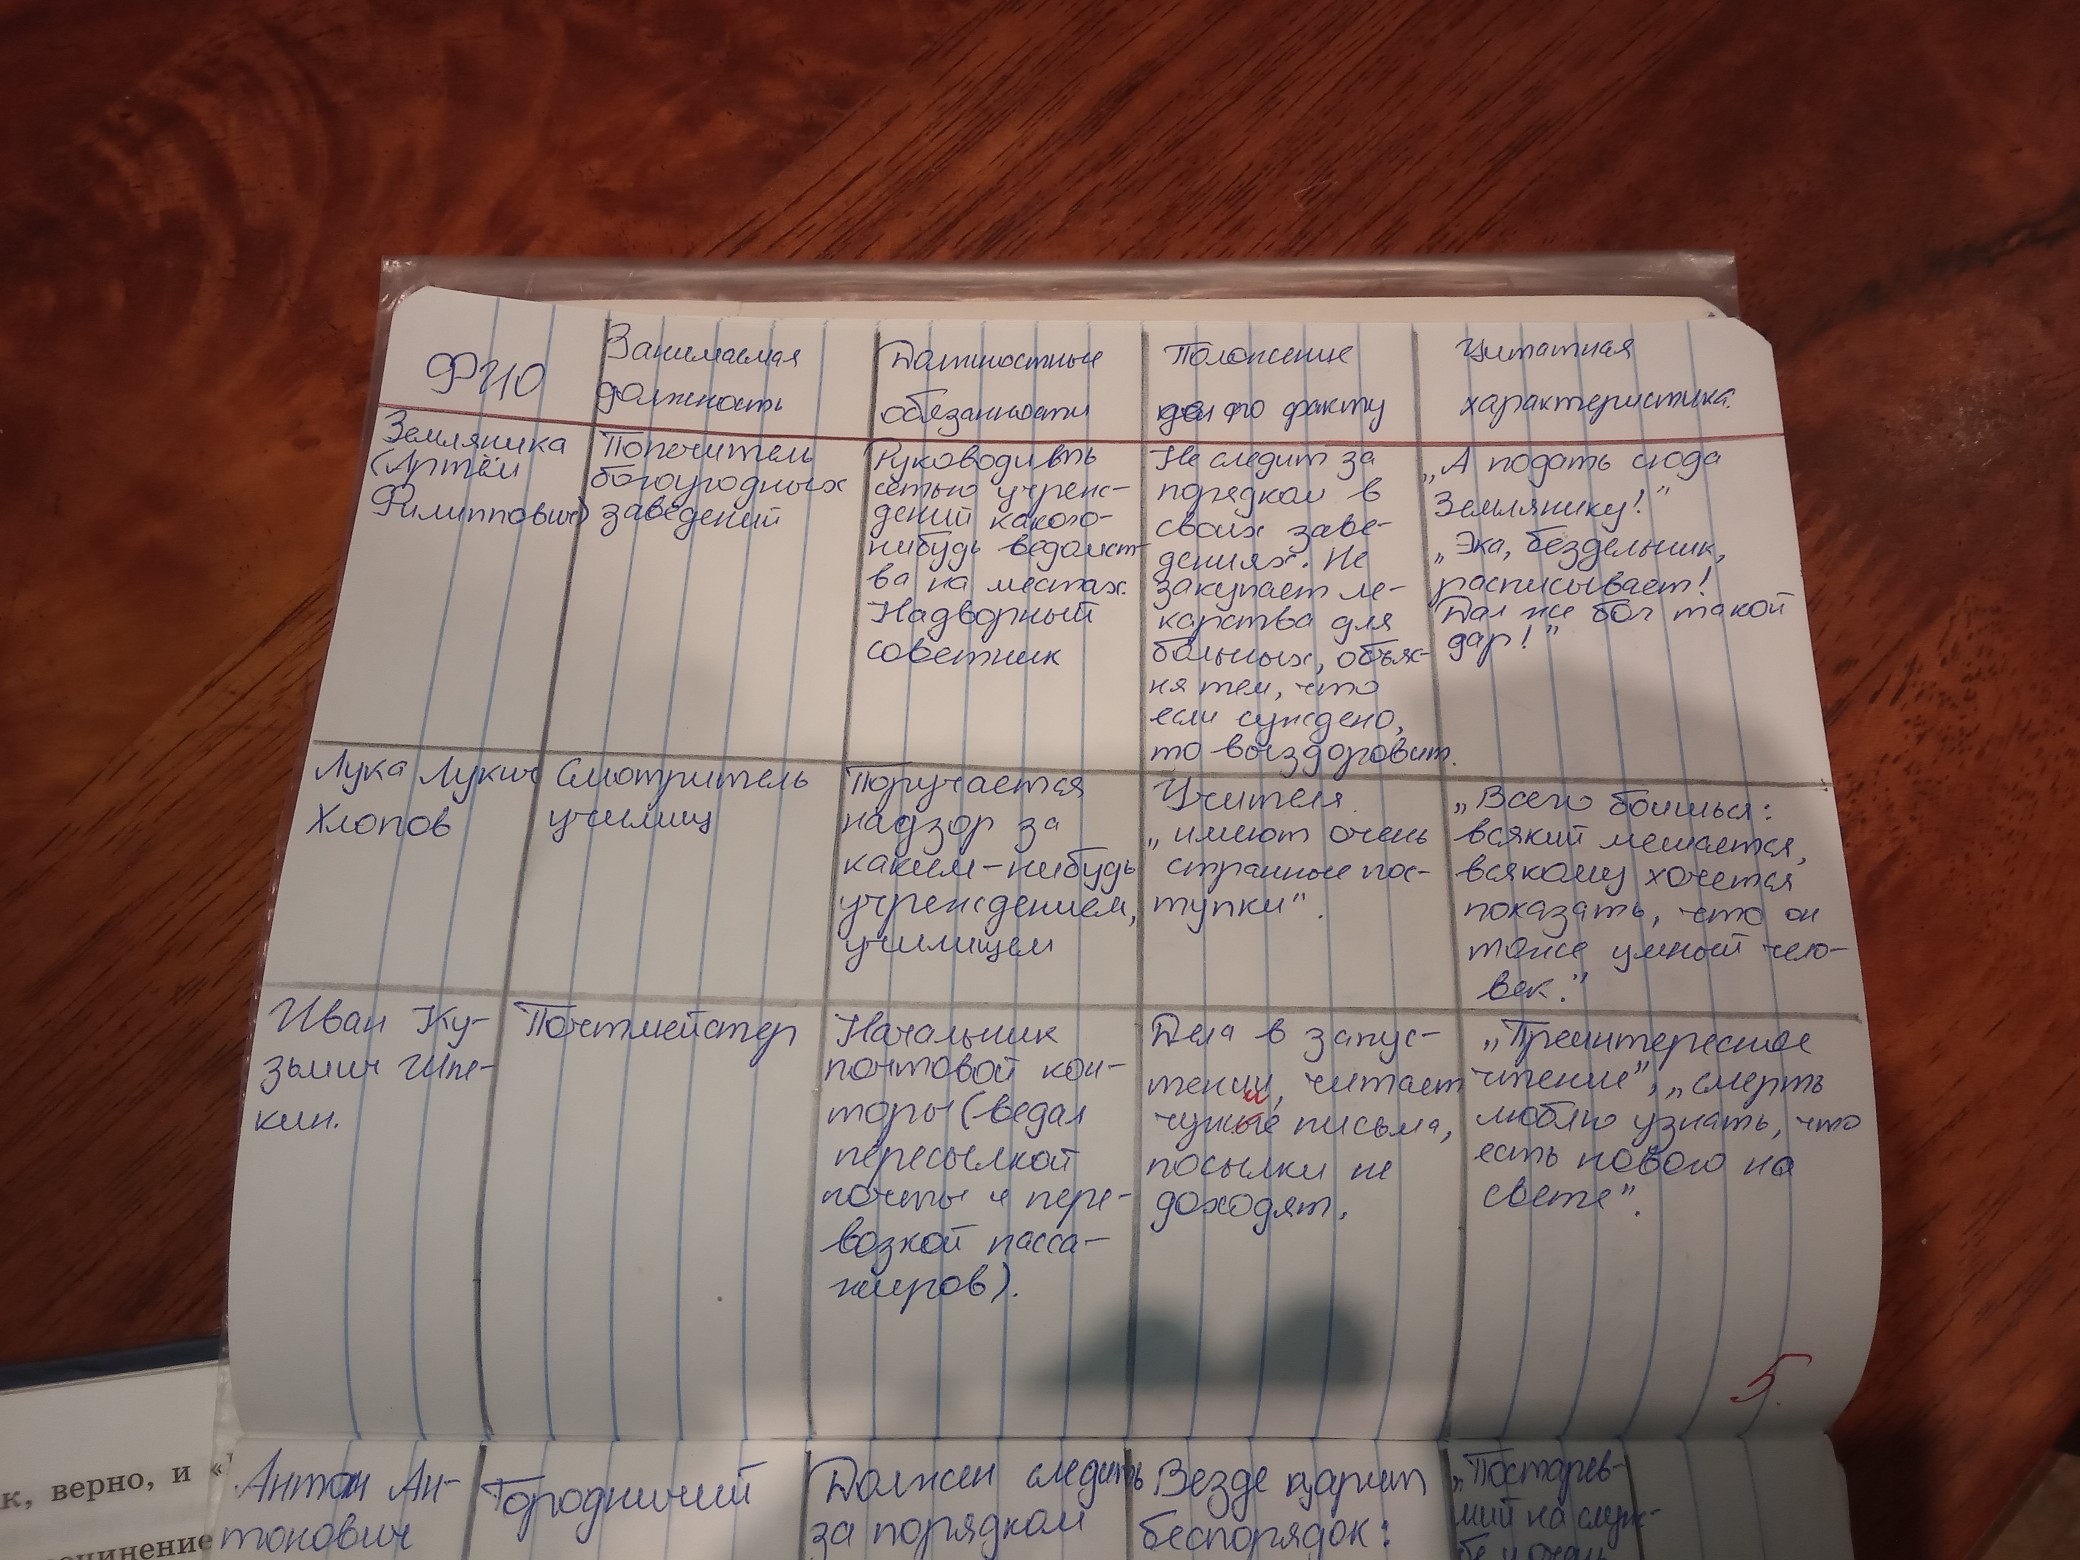 ФИО
Занимаемая
должность
Должностные
обязанности
Положение
дел по факту
Цитатная
характеристика.
Земляника
(Артём
Филиппович)
Попечитель
богоугодных
заведений
Руководивть
сетью учреж-
дений какого-
нибудь ведомст-
ва на местах.
Надворный
советник
Не следит за
порядком в
своих заве-
дениях. Не
закупает ле-
карства для
больных, объяс-
ня тем, что
если суждено,
то выздоровит.
„А подать сюда
Землянику!"
„Эка, бездельник,
расписывает!
Дал же бог такой
дар!"
Лука Лукич
Хлопов
Смотритель
училищ
Поручается
надзор за
каким-нибудь
учреждением,
училищем
Учителя
„имеют очень
странные пос-
тупки".
„Всего боишься:
всякий мешается,
всякому хочется
показать, что он
тоже умный чело-
век."
Иван Ку-
зьмич Шпе-
кин.
Почтмейстер
Начальник
почтовой кон-
торы (ведал
пересылкой
почты и пере-
возкой пасса-
жиров).
Дела в запус-
тении, читает
чужие письма,
посылки не
доходят.
„Преинтересное
чтение", „смерть
люблю узнать, что
есть нового на
свете".
5
Антон Ан-
тонович
Городничий
Должен следить
за порядком
Везде царит
беспорядок:
„Постарев-
ший на служ-
бе и очень
к, верно, и «
очинение